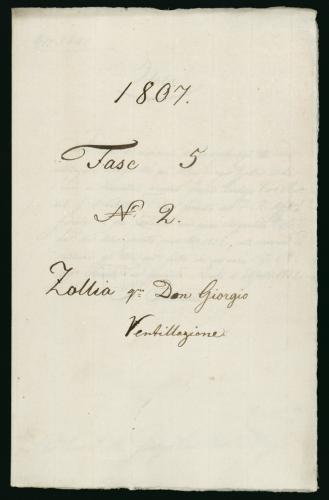 1807.
Fasc 5
N. 2.
Zollia qm Don Giorgio
Ventillazione